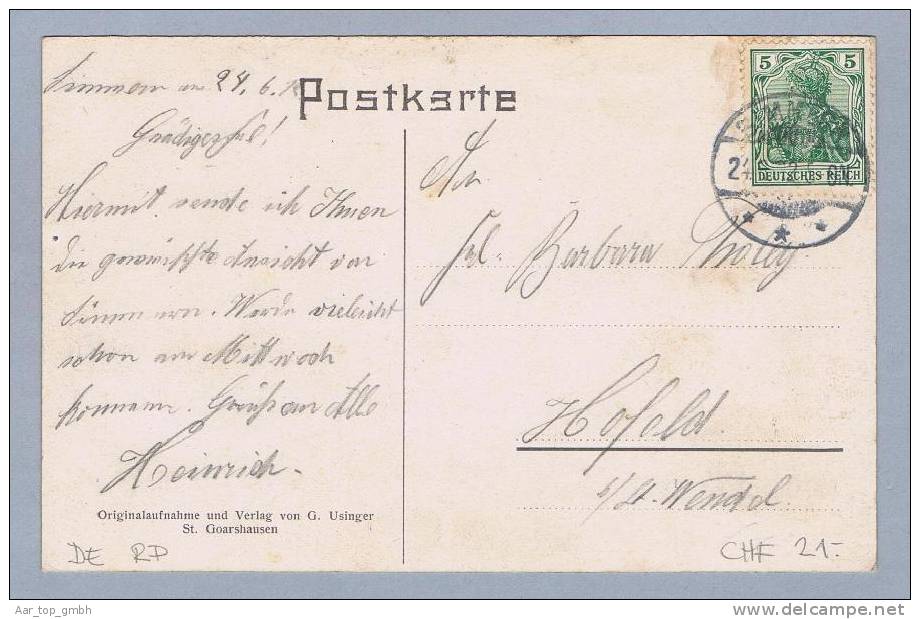 Simmern am 24. 6. 1
Postkarte
5 5
DEUTSCHES REICH
Gnädiges Frl!
Hiermit sende ich Ihnen
die gewünschte Ansicht von
Simmern. Werde vieleicht
schon am Mittwoch
kommen. Gruß an Alle
Heinrich.
An
Frl. Barbara
Hofeld
b/ St. Wendel
Originalaufnahme und Verlag von G. Usinger
St. Goarshausen
DE RP
CHF 21.-
Aar_top_gmbh
delcampe.net